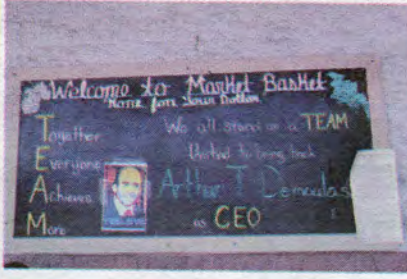 Welcome to Market Basket
More for Your Dollar
Together
Everyone
Achieves
More
We all stand as a TEAM
United to bring back
Arthur T Demoulas
as CEO